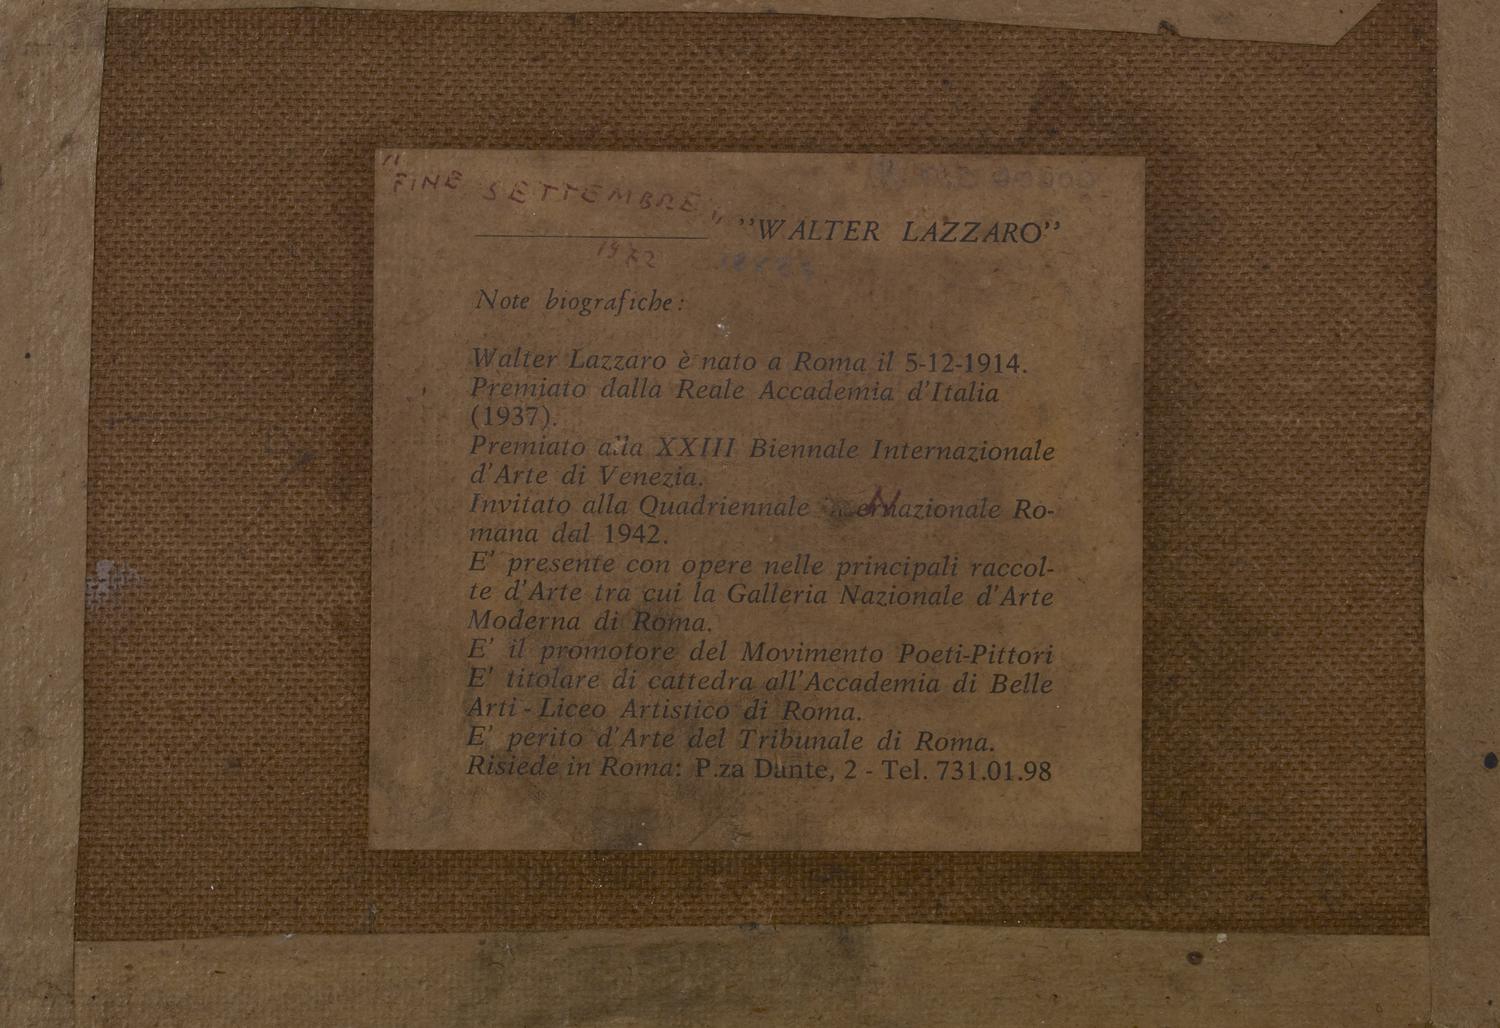 "FINE SETTEMBRE"
"WALTER LAZZARO"
1972
Note biografiche:
Walter Lazzaro è nato a Roma il 5-12-1914.
Premiato dalla Reale Accademia d'Italia
(1937).
Premiato alla XXIII Biennale Internazionale
d'Arte di Venezia.
Invitato alla Quadriennale Ro-
mana dal 1942.
E' presente con opere nelle principali raccol-
te d'Arte tra cui la Galleria Nazionale d'Arte
Moderna di Roma.
E' il promotore del Movimento Poeti-Pittori
E' titolare di cattedra all'Accademia di Belle
Arti - Liceo Artistico di Roma.
E' perito d'Arte del Tribunale di Roma.
Risiede in Roma: P.za Dante, 2 - Tel. 731.01.98